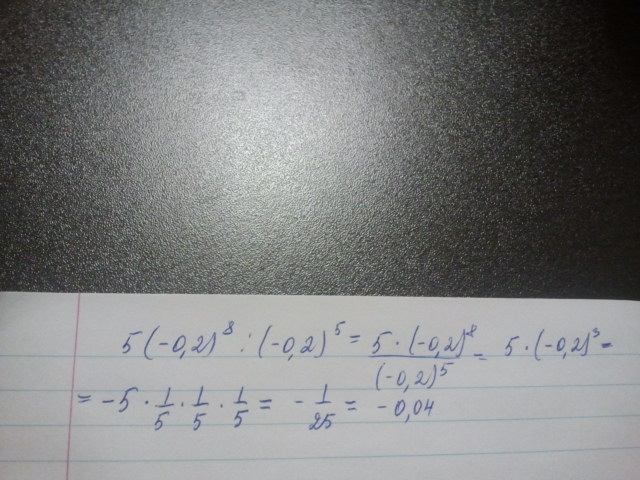 5(-0,2)⁸ : (-0,2)⁵ = 5·(-0,2)⁸/(-0,2)⁵ = 5·(-0,2)³ =
= -5 · 1/5 · 1/5 · 1/5 = - 1/25 = -0,04